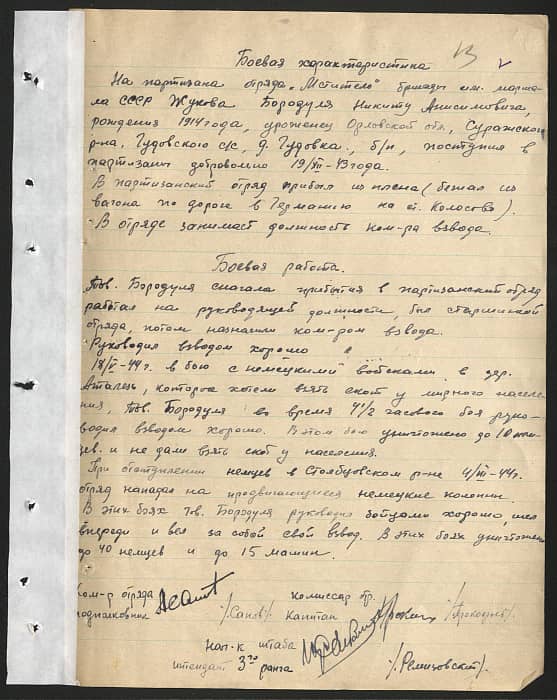 13 v
Боевая характеристика
На партизана отряда „Мститель" бригады им. марша-
ла СССР Жукова Бородуля Никиту Анисимовича,
рождения 1914 года, уроженец Орловской обл., Суражского
р-на, Гудовского с/с, д. Гудовка., б/п, поступил в
партизаны добровольно 19/VII-43 года.
В партизанский отряд прибыл из плена (бежал из
вагона по дороге в Германию на ст. Колосово).
В отряде занимает должность ком-ра взвода.
Боевая работа.
Тов. Бородуля сначала прибытия в партизанский отряд
работал на руководящей должности, был старшиной
отряда, потом назначили ком-ром взвода.
Руководил взводом хорошо
18/V-44 г. в бою с немецкими войсками в дер.
которое хотели взять скот у мирного населе-
ния, Тов. Бородуля во время 4 1/2 часового боя руко-
водил взводом хорошо. В этом бою уничтожено до 10 нем-
цев. и не дали взять скот у населения.
При отступлении немцев в Столбцовском р-не 4/VII-44 г.
отряд нападал на продвигающиеся немецкие колонны.
В этих боях Тов. Бородуля руководил бойцами хорошо, шел
впереди и вел за собой свой взвод. В этих боях уничтожено
до 40 немцев и до 15 машин.
Ком-р отряда комиссар отр.
подполковник /Санов/ капитан /Прокопов/.
Нач-к штаба
интендант 3го ранга /Ремизовский/.